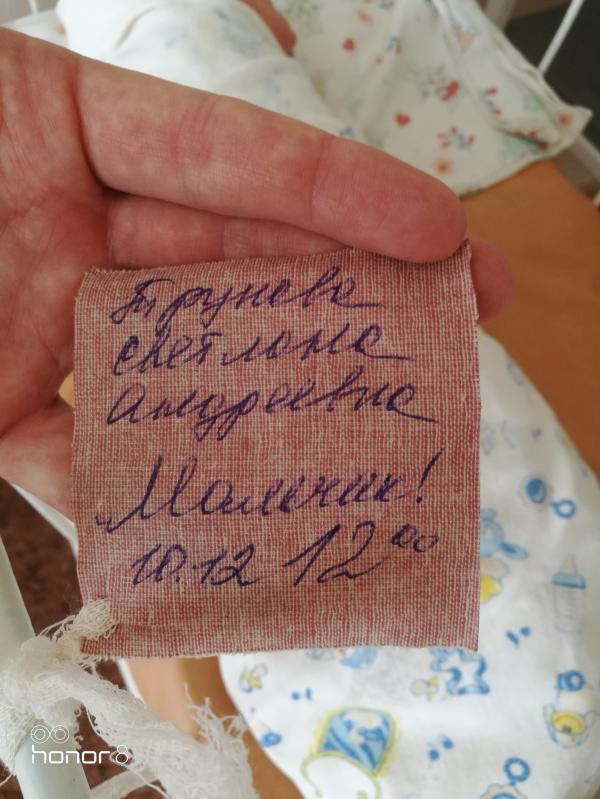 Трунова
Светлана
Андреевна
Мальчик!
10.12 12⁰⁰
honor 8